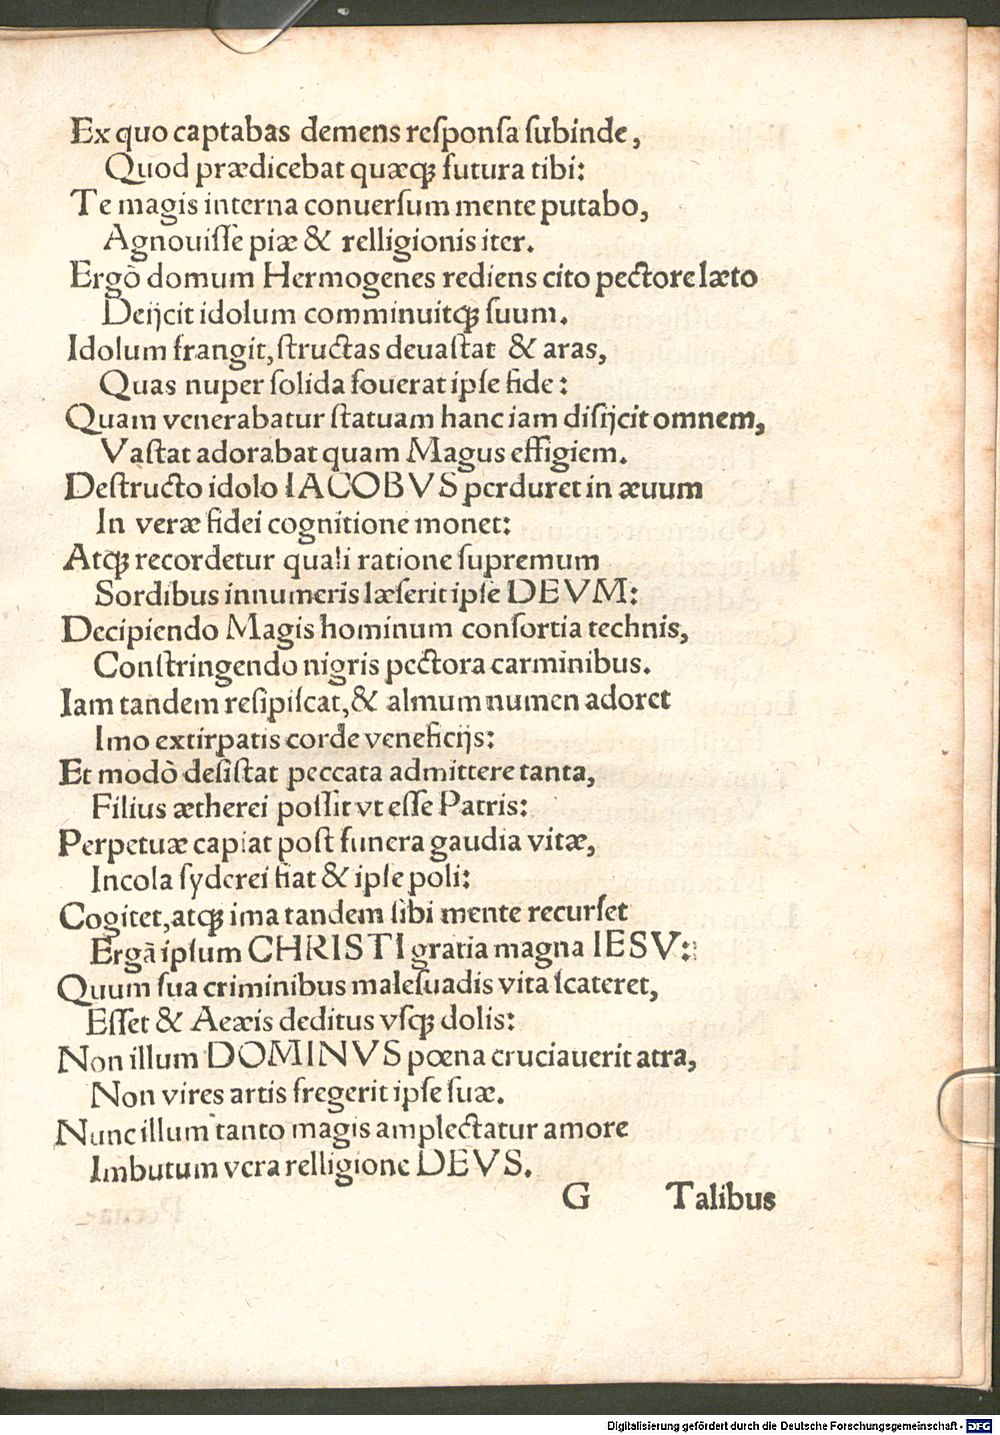 Ex quo captabas demens reſponſa ſubinde,
Quod prædicebat quæqꝫ futura tibi:
Te magis interna conuerſum mente putabo,
Agnouiſſe piæ & relligionis iter.
Ergò domum Hermogenes rediens cito pectore læto
Deijcit idolum comminuitqꝫ ſuum.
Idolum frangit, ſtructas deuaſtat & aras,
Quas nuper ſolida fouerat ipſe fide:
Quam venerabatur ſtatuam hanc iam diſijcit omnem,
Vaſtat adorabat quam Magus effigiem.
Deſtructo idolo IACOBVS perduret in æuum
In veræ fidei cognitione monet:
Atqꝫ recordetur quali ratione ſupremum
Sordibus innumeris læſerit ipſe DEVM:
Decipiendo Magis hominum conſortia technis,
Conſtringendo nigris pectora carminibus.
Iam tandem reſipiſcat, & almum numen adoret
Imo extirpatis corde veneficijs:
Et modò deſiſtat peccata admittere tanta,
Filius ætherei poſſit vt eſſe Patris:
Perpetuæ capiat poſt funera gaudia vitæ,
Incola ſyderei fiat & ipſe poli:
Cogitet, atqꝫ ima tandem ſibi mente recurſet
Ergà ipſum CHRISTI gratia magna IESV:
Quum ſua criminibus maleſuadis vita ſcateret,
Eſſet & Aeæis deditus vſqꝫ dolis:
Non illum DOMINVS pœna cruciauerit atra,
Non vires artis fregerit ipſe ſuæ.
Nunc illum tanto magis amplectatur amore
Imbutum vera relligione DEVS.
G Talibus
Digitalisierung gefördert durch die Deutsche Forschungsgemeinschaft - DFG